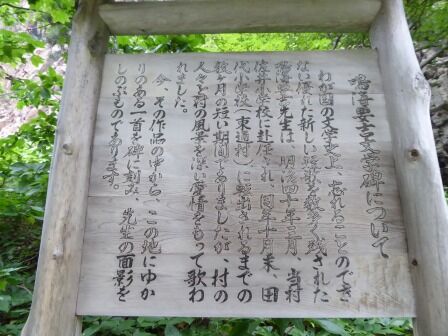 鳴海要吉文学碑について
わが国の文学史上、忘れることのでき
ない優れた新しい短歌を数多く残された
鳴海要吉先生は、明治四十年三月、当村
佐井小学校に赴任され、同年十月末、田
代小学校(東通村)に転出されるまでの
数ヶ月の短い期間でありましたが、村の
人々と村の風景を深い愛情をもって歌わ
れました。
今、その作品の中から、この地にゆか
りのある一首を碑に刻み、先生の面影を
しのぶものであります。